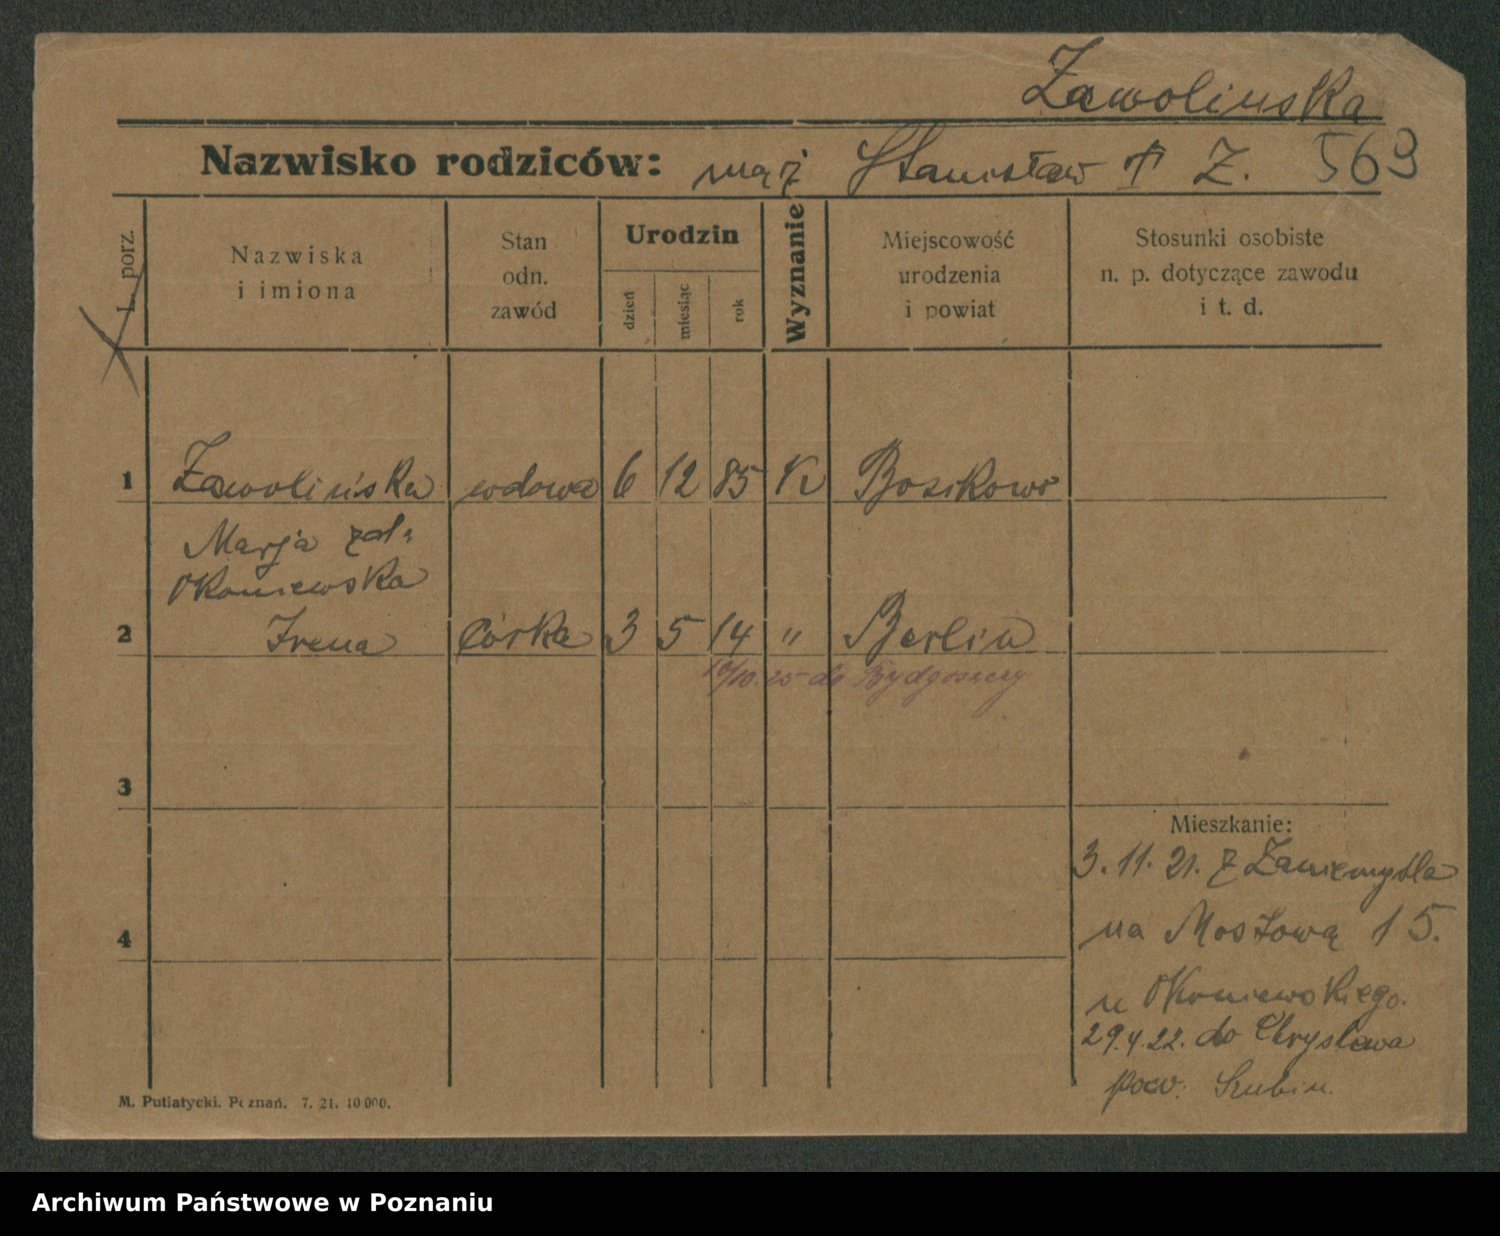 Zawolinska
Nazwisko rodziców: mąż Stanisław † Z. 569
L. porz.
Nazwiska
i imiona
Stan
odn.
zawód
Urodzin
dzień
miesiąc
rok
Wyznanie
Miejscowość
urodzenia
i powiat
Stosunki osobiste
n. p. dotyczące zawodu
i t. d.
1 Zawolińska wdowa 6 12 85 K Bosikowo
Marja
Okoniewska
2 Irena córka 3 5 14 " Berlin
do Bydgoszczy
3
Mieszkanie:
3. 11. 21. z Zaniemyśla
4
na Mostową 15.
u Okoniewskiego.
29.4.22. do Chrystowa
pow. Szubin.
M. Putiatycki. Poznań. 7. 21. 10 000.
Archiwum Państwowe w Poznaniu